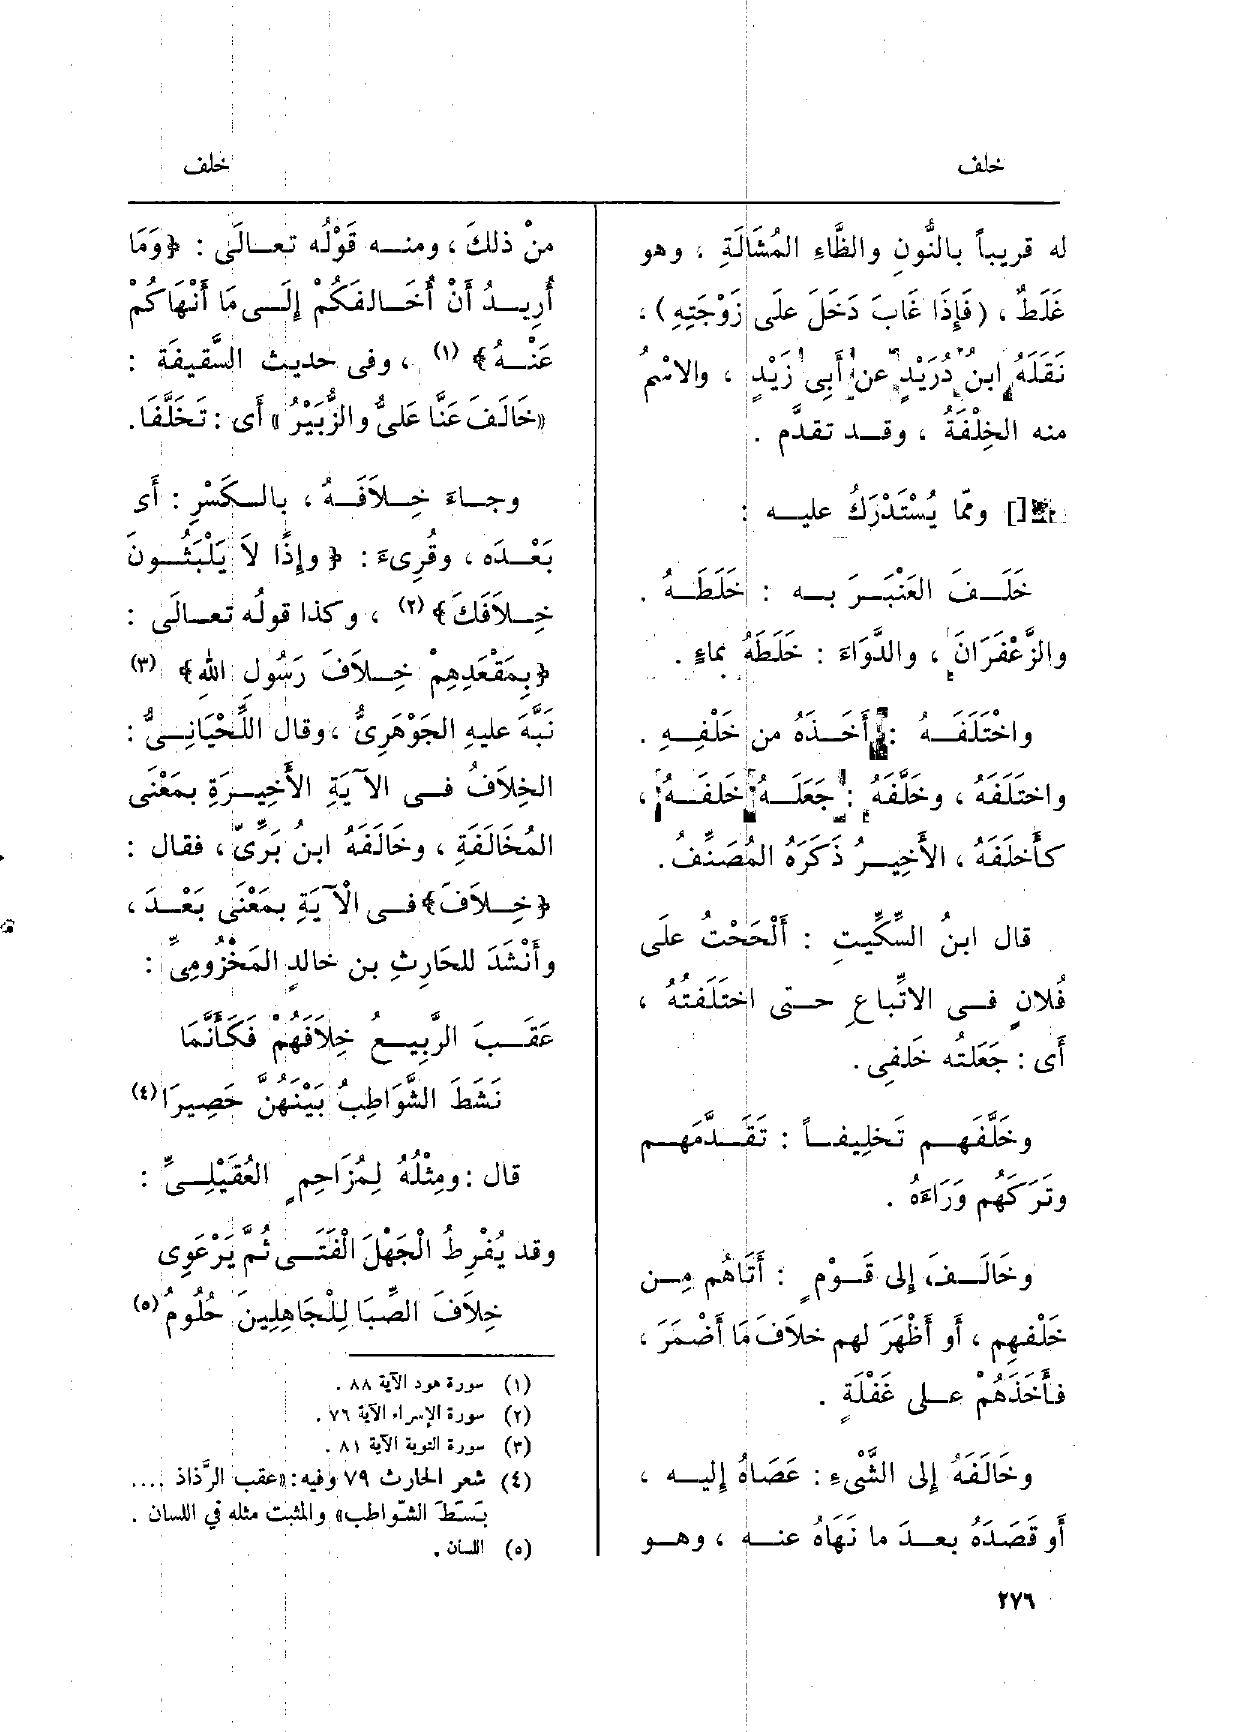 خلف
خلف
له قريباً بالنُّونِ والظَّاءِ المُشَالَةِ ، وهو
غَلَطٌ ، (فَإِذَا غَابَ دَخَلَ علَى زَوْجَتِهِ) ،
نَقَلَهُ ابنُ دُرَيْدٍ عن أَبِى زَيْدٍ ، والاسْمُ
منه الخِلْفَةُ ، وقد تقدَّم .
[] وممّا يُسْتَدْرَكُ عليه :
خَلَفَ العَنْبَرَ به : خَلَطَهُ .
والزَّعْفَرَانَ ، والدَّوَاءَ : خَلَطَهُ بماءٍ .
واخْتَلَفَهُ : أَخَذَهُ من خَلْفِهِ .
واختَلَفَهُ ، وخَلَّفَهُ : جَعَلَهُ خَلفَهُ ،
كأَخلَفَهُ ، الأَخِيرُ ذَكَرَهُ المُصَنِّفُ .
قال ابنُ السِّكِّيتِ : أَلْحَحْتُ علَى
فُلانٍ فى الاتِّباعِ حتى اختَلَفتُهُ ،
أَى : جَعَلتُه خَلفِى .
وخَلَّفَهم تَخلِيفاً : تَقَدَّمَهم
وتَرَكَهُم وَرَاءَهُ .
وخَالَفَ إِلى قَوْمٍ : أَتَاهُم مِن
خَلْفِهِم ، أَو أَظْهَرَ لهم خلاَفَ مَا أَضْمَرَ ،
فأَخَذَهُمْ على غَفْلَةٍ .
وخَالَفَهُ إِلى الشَّىْءِ : عَصَاهُ إِليه ،
أَو قَصَدَهُ بعدَ ما نَهَاهُ عنه ، وهو
منْ ذلكَ ، ومنه قَوْلُه تعالَى : ﴿وَمَا
أُرِيدُ أَنْ أُخَالفَكُمْ إِلَى مَا أَنْهَاكُمْ
عَنْهُ﴾ (١) ، وفى حديث السَّقِيفَةِ :
«خَالَفَ عَنَّا عَلىُّ والزُّبَيْرُ» أَى : تَخَلَّفَا.
وجاءَ خِلاَفَهُ ، بالكَسْرِ : أَى
بَعْدَه ، وقُرِىءَ : ﴿وإِذًا لاَ يَلْبَثُونَ
خِلاَفَكَ﴾ (٢) ، وكذا قولُه تعالَى :
﴿بِمَقْعَدِهِمْ خِلاَفَ رَسُولِ اللهِ﴾ (٣)
نَبَّهَ عليهِ الجَوْهَرِىُّ ، وقال اللِّحْيَانِىُّ :
الخِلاَفُ فى الآيَةِ الأَخِيرَةِ بمَعْنَى
المُخَالَفَةِ ، وخَالَفَهُ ابنُ بَرِّىّ ، فقال :
﴿خِلاَفَ﴾ فى الْآيَةِ بمَعْنَى بَعْدَ ،
وأَنْشَدَ للحَارِثِ بن خالدٍ المَخْزُومِىِّ :
عَقَبَ الرَّبِيعُ خِلاَفَهُمْ فَكَأَنَّمَا
نَشَطَ الشَّوَاطِبُ بَيْنَهُنَّ حَصِيرَا(٤)
قال : ومِثْلُهُ لِمُزَاحِمٍ العُقَيْلِىِّ :
وقد يُفْرِطُ الْجَهْلَ الْفَتَى ثُمَّ يَرْعَوِى
خِلاَفَ الصِّبَا لِلْجَاهِلِينَ حُلُومُ(٥)
(١) سورة هود الآية ٨٨ .
(٢) سورة الإسراء الآية ٧٦ .
(٣) سورة التوبة الآية ٨١ .
(٤) شعر الحارث ٧٩ وفيه : «عقب الرَّذاذ ....
بَسَطَ الشوّاطب» والمثبت مثله في اللسان .
(٥) اللسان .
٢٧٦